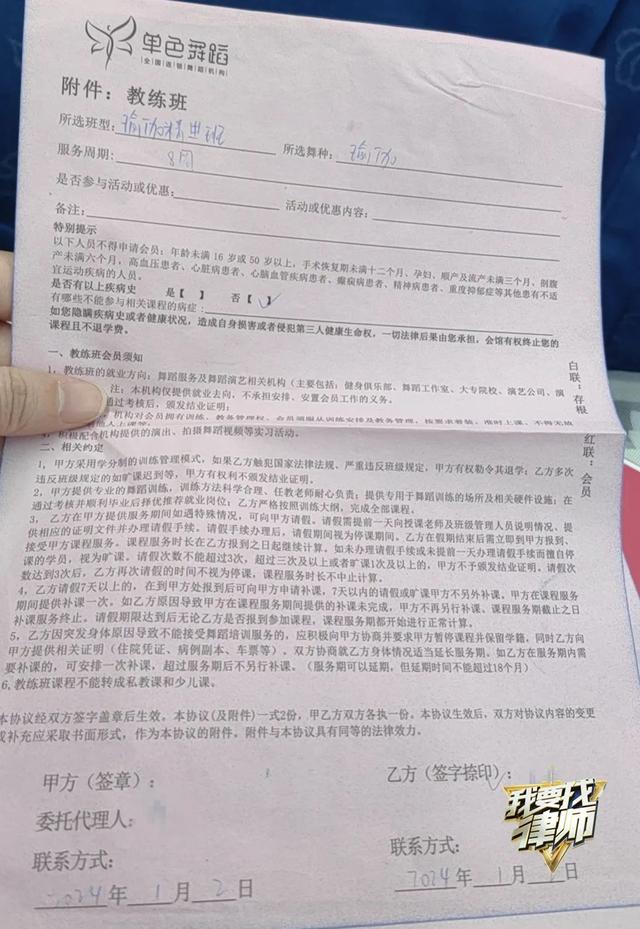 单色舞蹈
全国连锁舞蹈机构
附件：教练班
所选班型：瑜伽精典班 所选舞种：瑜伽
服务周期：8周
是否参与活动或优惠： 活动或优惠内容：
备注：
特别提示
以下人员不得申请会员：年龄未满 16 岁或 50 岁以上，手术恢复期未满十二个月、孕妇、顺产及流产未满三个月、剖腹
产未满六个月，高血压患者、心脏病患者、心脑血管疾病患者、癫痫病患者、精神病患者、重度抑郁症等其他患有不适
宜运动疾病的人员。
是否有以上疾病史 是【 】 否【✓】
有哪些不能参与相关课程的病症：
如您隐瞒疾病史或者健康状况，造成自身损害或者侵犯第三人健康生命权，一切法律后果由您承担，会馆有权终止您的
课程且不退学费。
一、教练班会员须知
1，教练班的就业方向：舞蹈服务及舞蹈演艺相关机构（主要包括：健身俱乐部、舞蹈工作室、大专院校、演艺公司、演
注：本机构仅提供就业去向，不承担安排、安置会员工作的义务。
通过考核后，颁发结业证明；
机构对会员拥有训练、教务管理权，会员须服从训练安排及教务管理，按要求着装，准时上课，不得无故
积极配合机构提供的演出、拍摄舞蹈视频等实习活动。
二、相关约定
1，甲方采用学分制的训练管理模式，如果乙方触犯国家法律法规、严重违反班级规定，甲方有权勒令其退学；乙方多次
违反班级规定的如旷课迟到等，甲方有权利不颁发结业证明。
2，甲方提供专业的舞蹈训练，训练方法科学合理、任教老师耐心负责；提供专用于舞蹈训练的场所及相关硬件设施；在
通过考核并顺利毕业后择优推荐就业岗位，乙方严格按照训练大纲，完成全部课程。
3，乙方在甲方提供服务期间如遇特殊情况，可向甲方请假。请假需提前一天向授课老师及班级管理人员说明情况、提
供相应的证明文件并办理请假手续。请假手续办理后，请假期间视为停课期间。乙方在假期结束后需立即到甲方报到、
接受甲方课程服务。课程服务时长在乙方报到之日起继续计算。如未办理请假手续或未提前一天办理请假手续而擅自停
课的学员，视为旷课。请假次数不能超过3次，超过三次及以上或者旷课1次及以上的，甲方不予颁发结业证明。请假次
数达到3次后，乙方再次请假的时间不视为停课，课程服务时长不中止计算。
4，乙方请假7天以上的，在到甲方处报到后可向甲方申请补课，7天以内的请假或旷课甲方不另外补课。甲方在课程服务
期间提供补课一次。如乙方原因导致甲方在课程服务期间提供的补课未完成，甲方不再另行补课。课程服务期截止之日
补课服务终止。请假期限达到后无论乙方是否报到参加课程，课程服务期都开始进行正常计算。
5，乙方因突发身体原因导致不能接受舞蹈培训服务的，应积极向甲方协商并要求甲方暂停课程并保留学籍，同时乙方向
甲方提供相关证明（住院凭证、病例副本、车票等）。双方协商就乙方身体情况适当延长服务期。如乙方在服务期内需
要补课的，可安排一次补课，超过服务期后不另行补课。（服务期可以延期，但延期时间不能超过18个月）
6，教练班课程不能转成私教课和少儿课。
本协议经双方签字盖章后生效。本协议(及附件)一式2份，甲乙方双方各执一份。本协议生效后，双方对协议内容的变更
或补充应采取书面形式，作为本协议的附件。附件与本协议具有同等的法律效力。
甲方（签章）： 乙方（签字捺印）：
委托代理人：
联系方式： 联系方式：
2024年1月2日 2024年1月2日
白联：存根
红联：会员
我要找律师